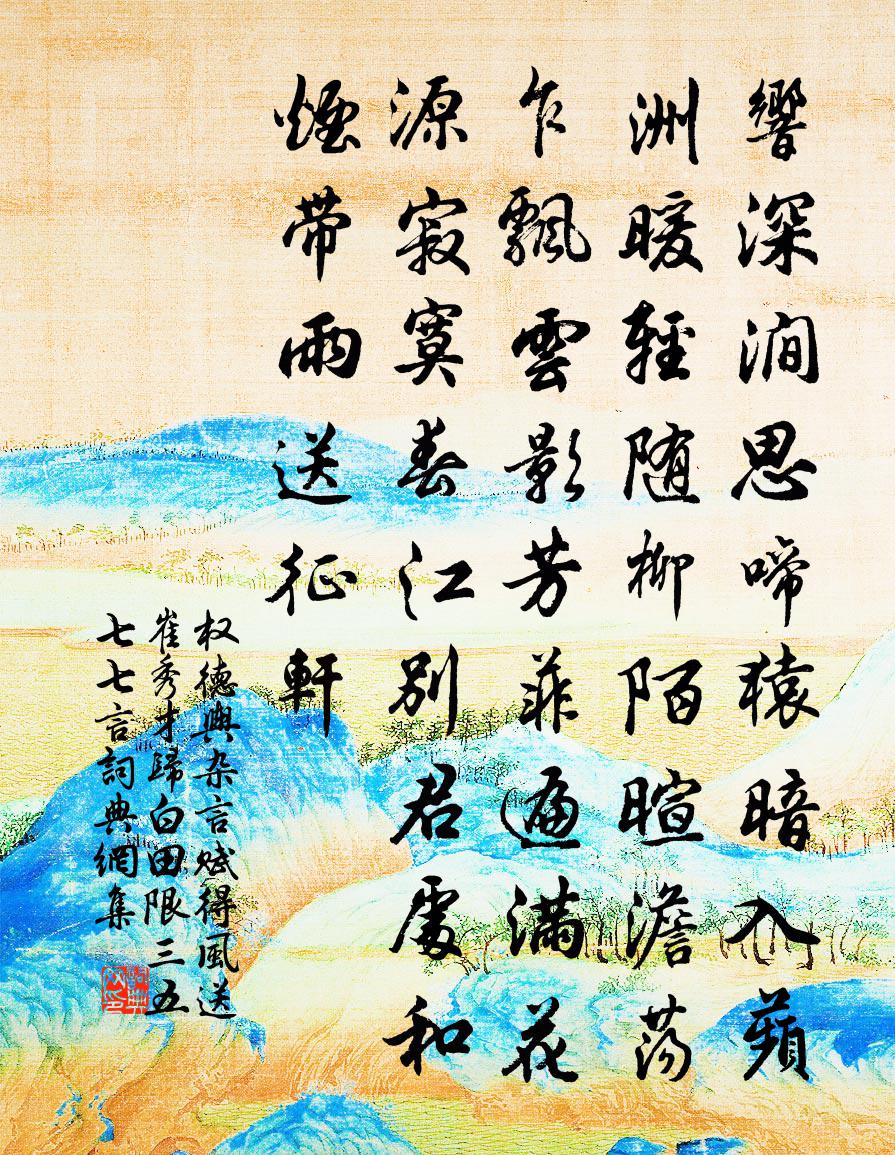 響深澗思啼猿暗入蘋
洲暖輕隨柳陌暄澹荡
乍飄雲影芳菲遍滿花
源寂寞春江別君處和
煙帶雨送征軒
权德輿杂言赋得風送
崔秀才歸白田限三五
七七言詞典網集